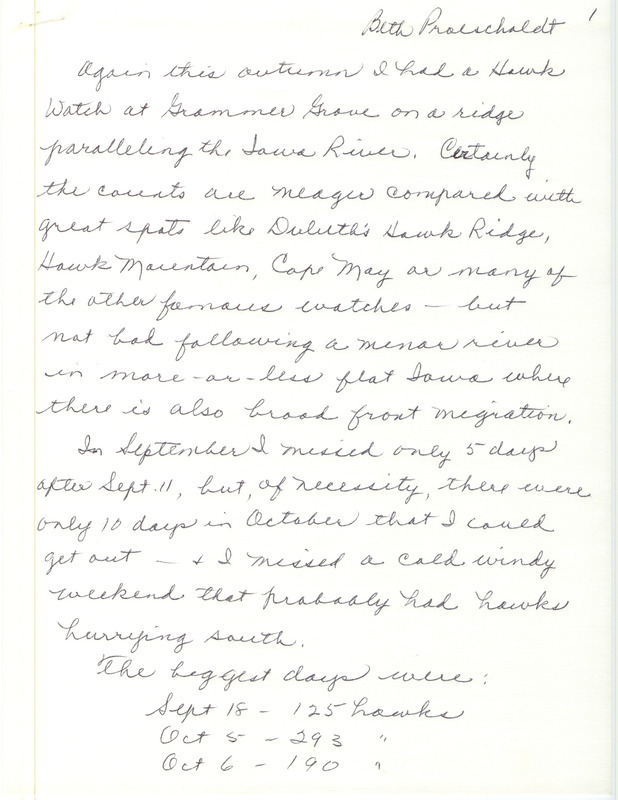 Beth Proescholdt 1
Again this autumn I had a Hawk
Watch at Grammer Grove on a ridge
paralleling the Iowa River. Certainly
the counts are meager compared with
great spots like Duluth's Hawk Ridge,
Hawk Mountain, Cape May or many of
the other famous watches — but
not bad following a minor river
in more-or-less flat Iowa where
there is also broad front migration.
In September I missed only 5 days
after Sept. 11, but, of necessity, there were
only 10 days in October that I could
get out — & I missed a cold windy
weekend that probably had hawks
hurrying south.
The biggest days were:
Sept 18 - 125 hawks
Oct 5 - 293 "
Oct 6 - 190 "